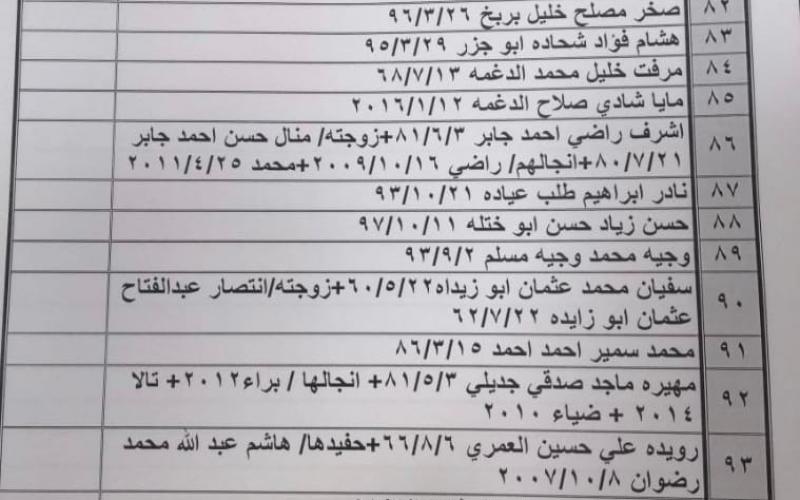 ٨٢ صخر مصلح خليل بربخ ٩٦/٣/٢٦
٨٣ هشام فؤاد شحاده ابو جزر ٩٥/٣/٢٩
٨٤ مرفت خليل محمد الدغمه ٦٨/٧/١٣
٨٥ مايا شادي صلاح الدغمه ٢٠١٦/١/١٢
٨٦ اشرف راضي احمد جابر ٨١/٦/٣+زوجته/ منال حسن احمد جابر
٨٠/٧/٢١+انجالهم/ راضي ٢٠٠٩/١٠/١٦+محمد ٢٠١١/٤/٢٥
٨٧ نادر ابراهيم طلب عياده ٩٣/١٠/٢١
٨٨ حسن زياد حسن ابو ختله ٩٧/١٠/١١
٨٩ وجيه محمد وجيه مسلم ٩٣/٩/٢
٩٠ سفيان محمد عثمان ابو زيداه٦٠/٥/٢٢+زوجته/انتصار عبدالفتاح
عثمان ابو زايده ٦٢/٧/٢٢
٩١ محمد سمير احمد احمد ٨٦/٣/١٥
٩٢ مهيره ماجد صدقي جديلي ٨١/٥/٣+ انجالها / براء٢٠١٢+ تالا
٢٠١٤ + ضياء ٢٠١٠
٩٣ رويده علي حسين العمري ٦٦/٨/٦+حفيدها/ هاشم عبد الله محمد
رضوان ٢٠٠٧/١٠/٨